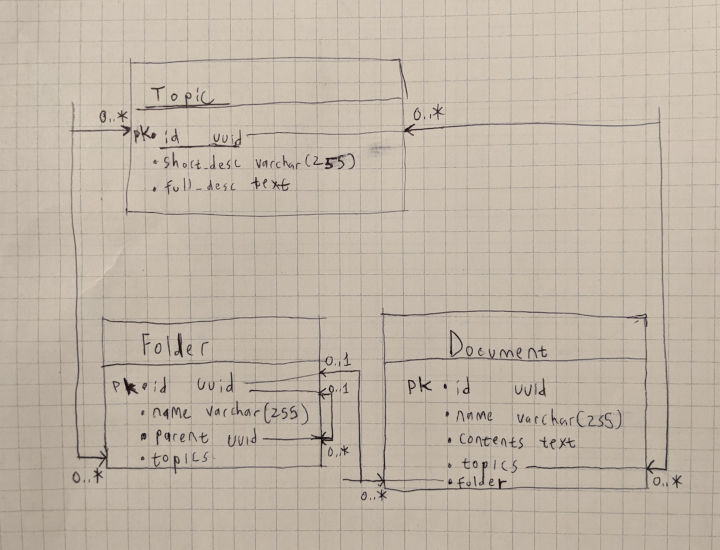 Topic
0..*
0..*
pk • id uuid
• short_desc varchar(255)
• full_desc text
Folder
0..1
pk • id uuid
0..1
• name varchar(255)
• parent uuid
0..*
• topics
0..*
Document
pk • id uuid
• name varchar(255)
• contents text
• topics
• folder
0..*
0..*